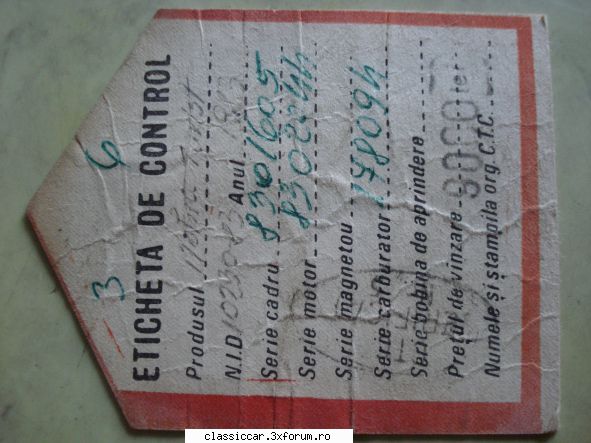 3 6
ETICHETA DE CONTROL
Produsul
N.I.D. Anul
Serie cadru 8301605
Serie motor
Serie magnetou
Serie carburator 178094
Serie bobina de aprindere
Prețul de vînzare 9000 lei
Numele și ștampila org. C.T.C.
classiccar.3xforum.ro